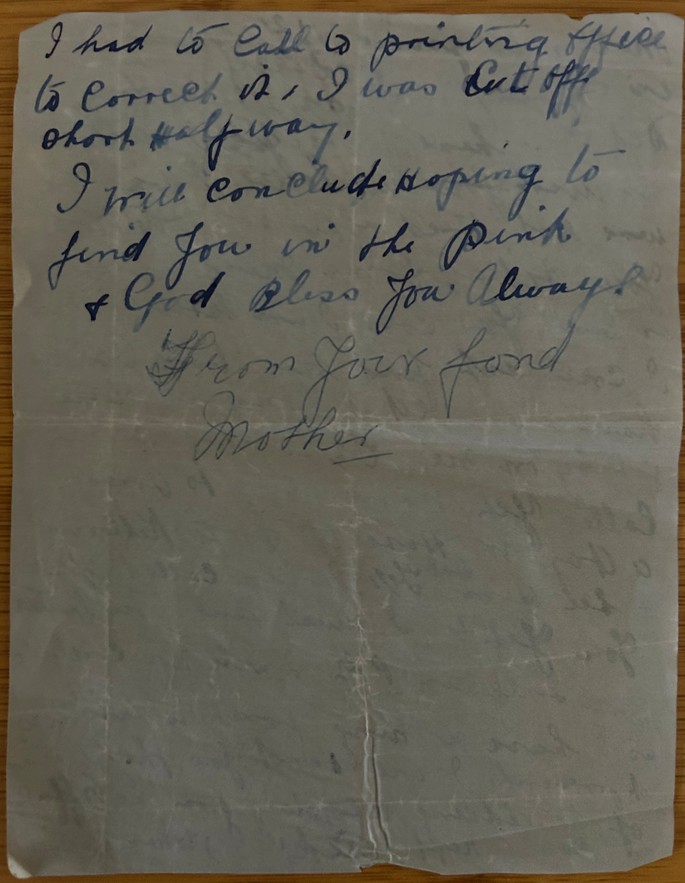 I had to Call to printing office
to correct it, I was Cut off
short Half way.
I will conclude Hoping to
find You in the pink
& God Bless You Always.
From Your fond
Mother